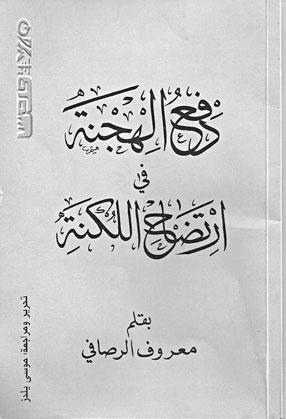 دفع الهجنة
في
ارتضاخ اللكنة
بقلم
معروف الرصافي
تحرير ومراجعة: موسى يلدز